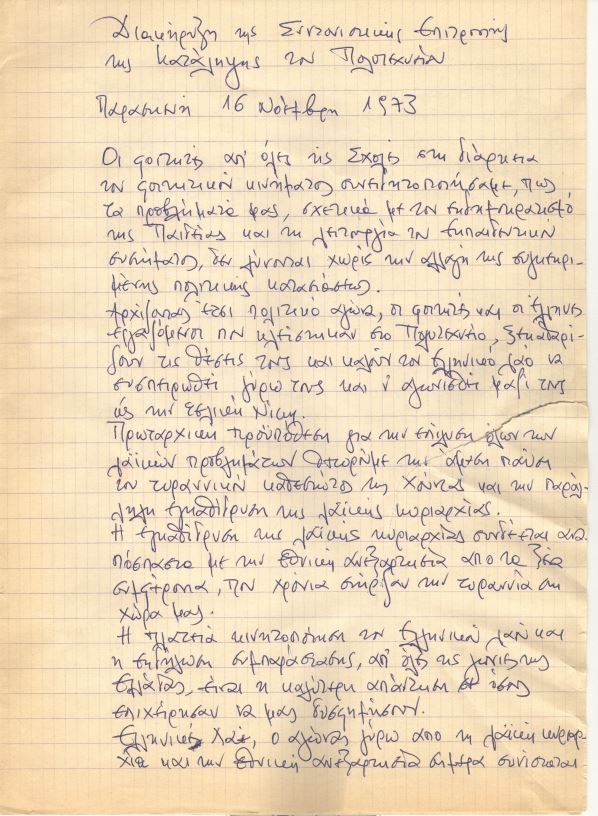 Διακήρυξη της Συντονιστικής Επιτροπής
της Κατάληψης του Πολυτεχνείου
Παρασκευή 16 Νοέμβρη 1973
Οι φοιτητές απ' όλες τις Σχολές στη διάρκεια
του φοιτητικού κινήματος συνειδητοποιήσαμε, πως
τα προβλήματά μας, σχετικά με τον εκδημοκρατισμό
της Παιδείας και τη λειτουργία του εκπαιδευτικού
συστήματος, δεν λύνονται χωρίς την αλλαγή της συγκεκρι-
μένης πολιτικής καταστάσεως.
Αρχίζοντας έτσι πολιτικό αγώνα, οι φοιτητές και οι Έλληνες
εργαζόμενοι που κλείστηκαν στο Πολυτεχνείο, ξεκαθαρί-
ζουν τις θέσεις τους και καλούν τον Ελληνικό λαό να
συσπειρωθεί γύρω τους και ν' αγωνισθεί μαζί τους
ώς την τελική Νίκη.
Πρωταρχική προϋπόθεση για την επίλυση όλων των
λαϊκών προβλημάτων θεωρούμε την άμεση παύση
του τυραννικού καθεστώτος της Χούντας και την παράλ-
ληλη εγκαθίδρυση της λαϊκής κυριαρχίας.
Η εγκαθίδρυση της λαϊκής κυριαρχίας συνδέεται ανα-
πόσπαστα με την εθνική ανεξαρτησία από τα ξένα
συμφέροντα, που χρόνια στήριζαν την τυραννία στη
χώρα μας.
Η πλατειά κινητοποίηση του Ελληνικού λαού και
η εκδήλωση συμπαράστασης, απ' όλες τις γωνιές της
Ελλάδας, είναι η καλύτερη απάντηση σε όσους
επιχείρησαν να μας δυσφημήσουν.
Ελληνικέ Λαέ, ο αγώνας γύρω από τη λαϊκή κυριαρ-
χία και την εθνική ανεξαρτησία σήμερα συνίσταται